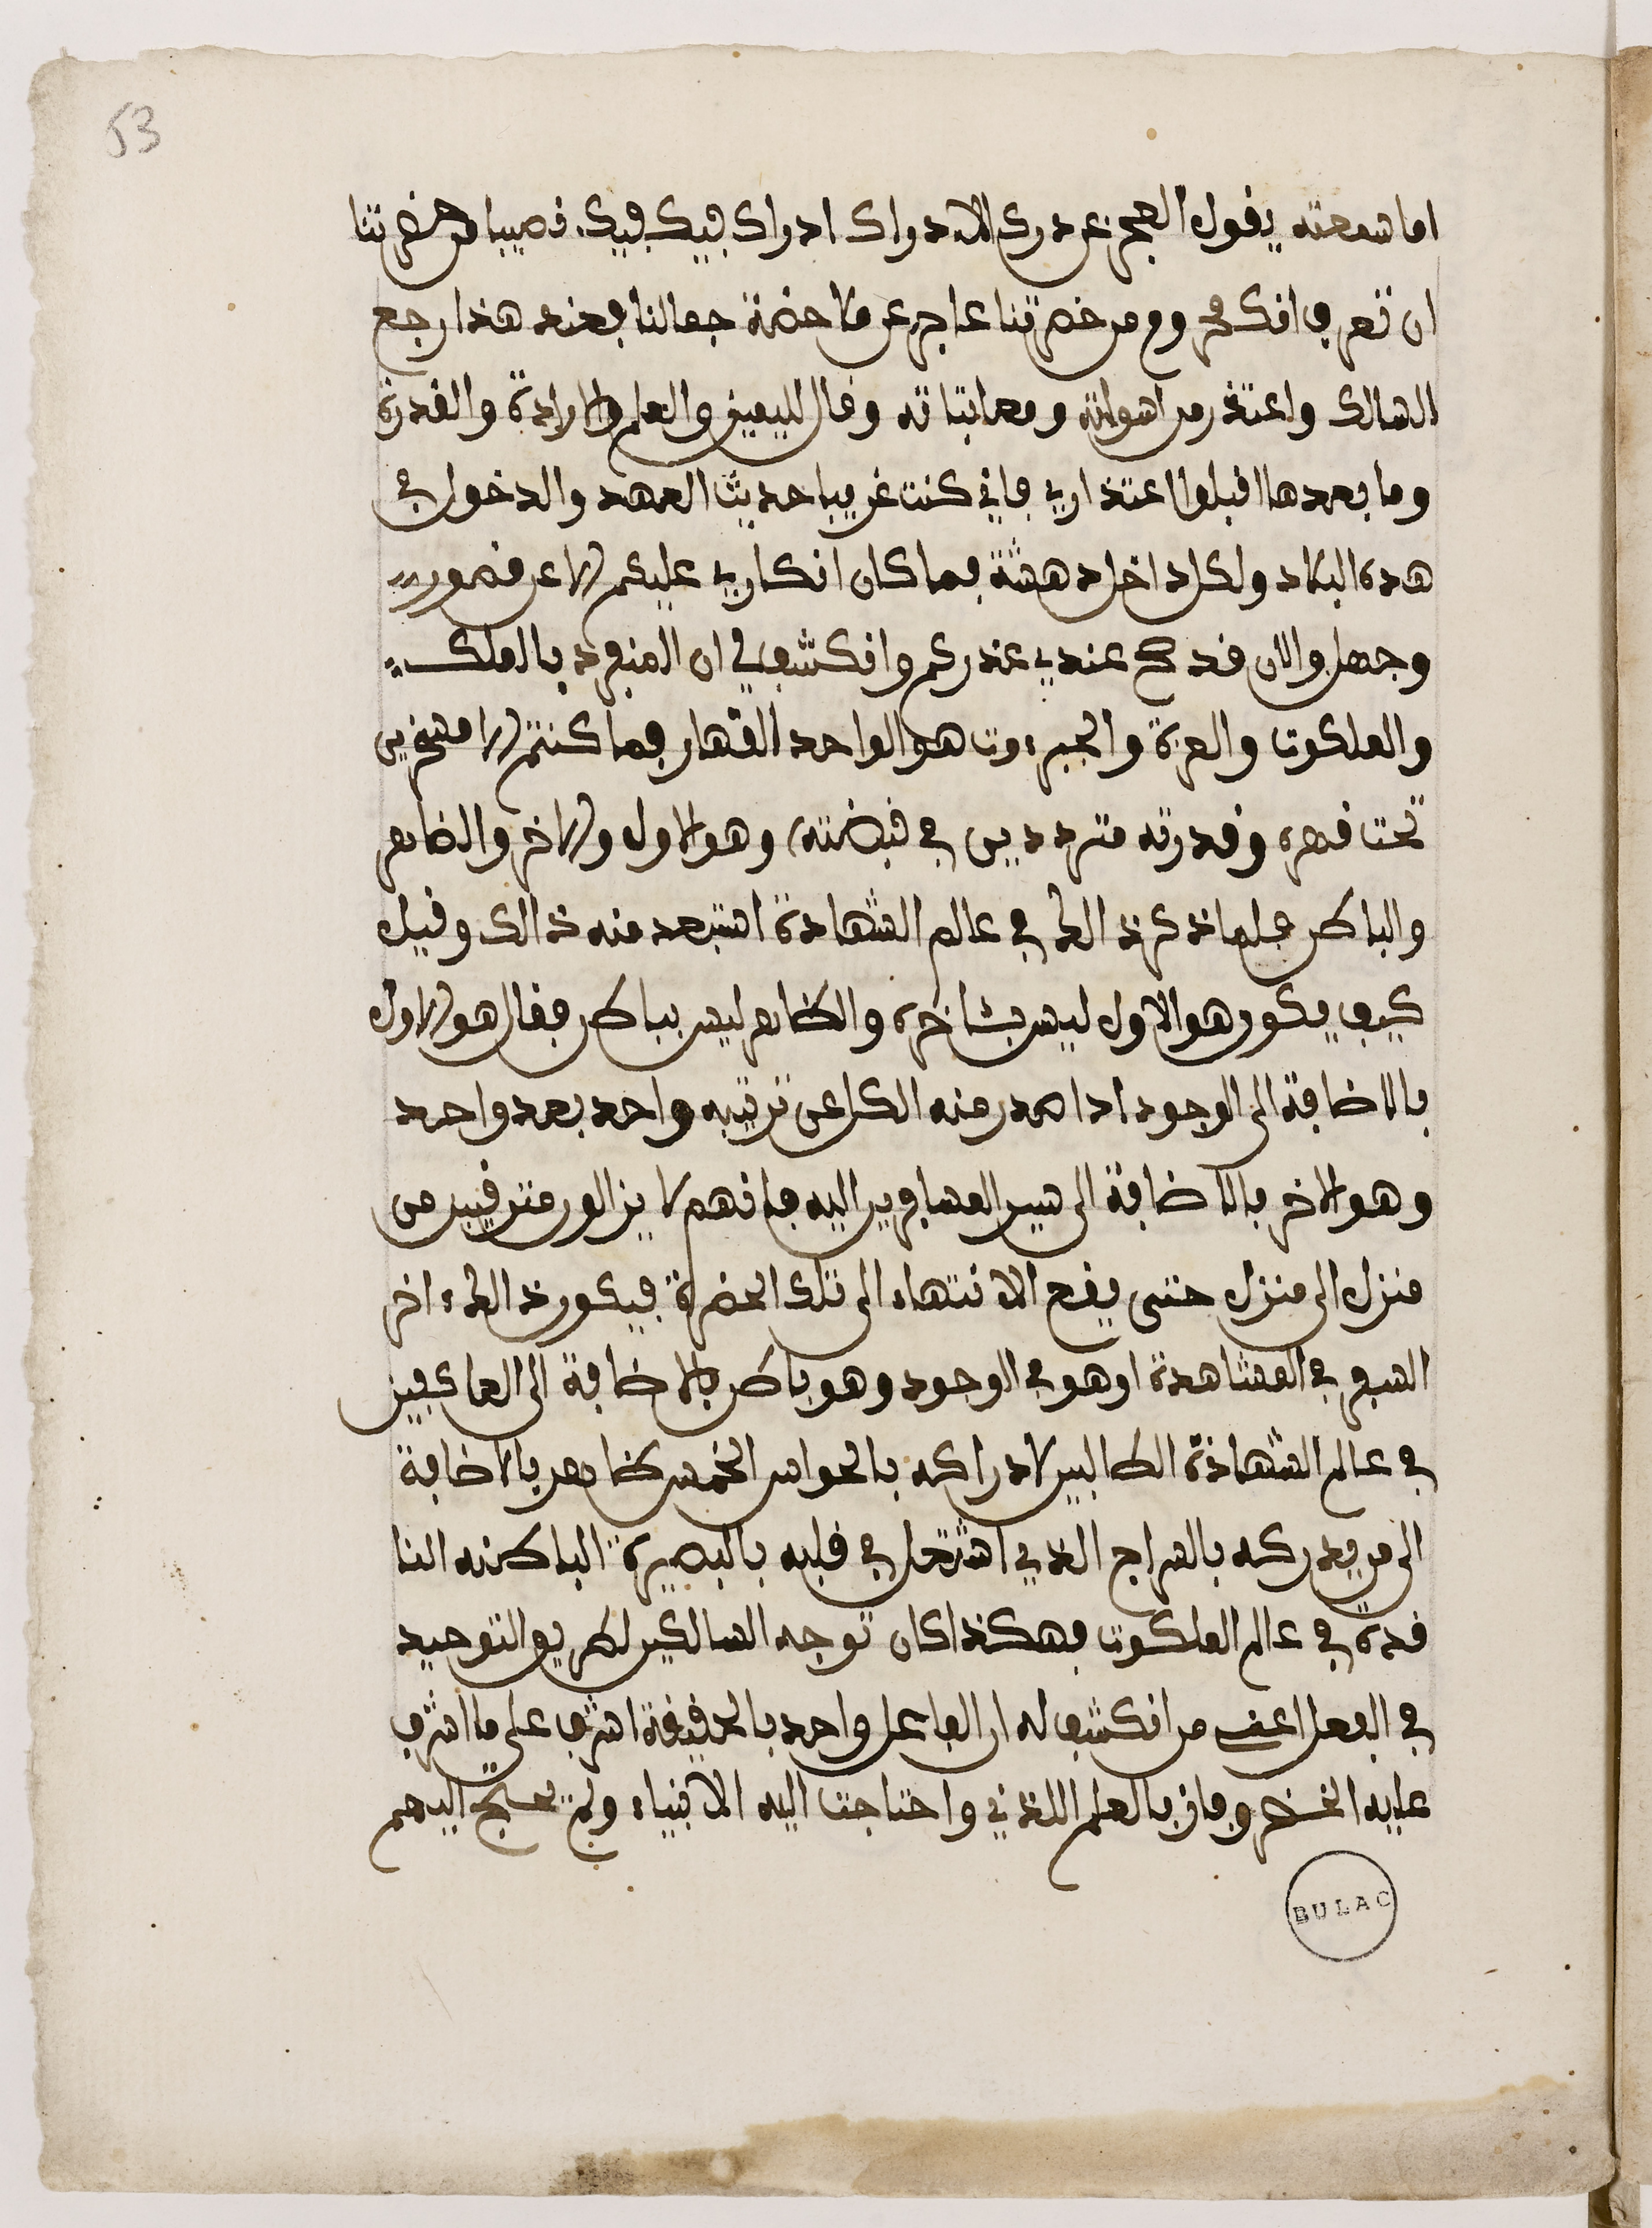 53
اما سمعته يقول العجز عن درك الادراك ادراك فيكفيك نصيبا من حضرتنا
ان تعرف انك محروم من حضرتنا عاجز عن ملاحضة جمالنا فعند هذا رجع
السالك واعتذر من اسولته ومعاتباته وقال لليمين والعلم والارادة والقدرة
وما بعدها اقبلوا اعتذاري فاني كنت غريبا حديث العهد والدخول في
هده البلاد ولكل داخل دهشة فما كان انكاري عليكم الا عن قصور
وجهل والان قد صح عندي عذركم وانكشف لي ان المنفرد بالملك
والملكوت والعزة والجبروت هو الواحد القهار فما كنتم الا مسخرين
تحت قهره وقدرته مترددين في قبضته وهو الاول والاخر والضاهر
والباطن فلما ذكر ذالك في عالم الشهادة استبعد منه ذالك وقيل
كيف يكون هو الاول ليس باخره والظاهر ليس بباطن فقال هو الاول
بالاضافة الى الوجود اذا صدر منه الكل عن ترتيبه واحد بعد واحد
وهو الاخر بالاضافة الى سير المسافرين اليه فانهم لا يزالون مترقيين من
منزل الى منزل حتى يقع الانتهاء الى تلك الحضرة فيكون ذالك ءاخر
السفر في المشاهدة اوهو في الوجود وهو باطن بالاضافة الى العاكفين
في عالم الشهادة الطالبين لادراكه بالحواس الخمس ظاهر بالاضافة
الى من يدركه بالسراج الذي اشتعل في قلبه بالبصيرة الباطنه النا
فدة في عالم الملكوت فهكذا كان توجه السالكين لطريق التوحيد
في الفعل اعني من انكشف له ان الفاعل واحد بالحقيقة اشرف على ما اشرف
عليه الخضر وفاز بالعلم اللذني واحتاجت اليه الانبياء ولم يحتج اليهم
BULAC